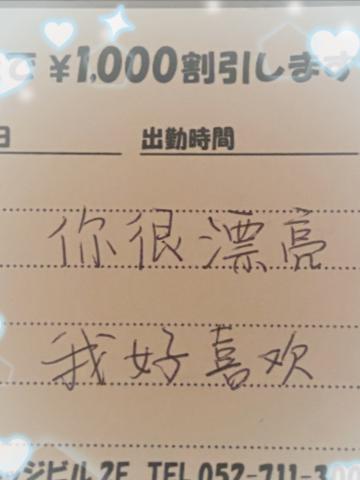 で ¥1,000割引します
日 出勤時間
你很漂亮
我好喜欢
ジビル2F TEL 052-711-3